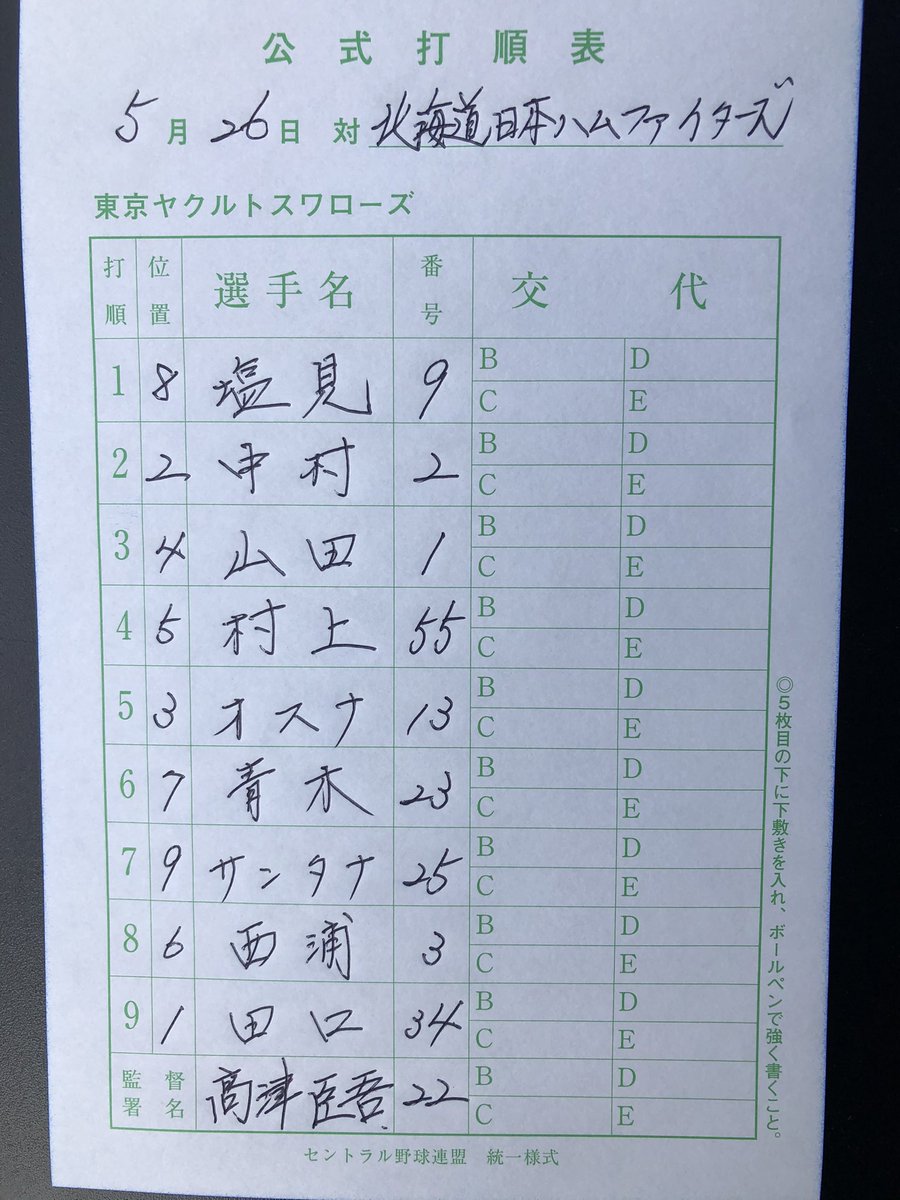 公式打順表
5月26日 対 北海道日本ハムファイターズ
東京ヤクルトスワローズ
打順 位置 選手名 番号 交代
1 8 塩見 9 B D
C E
2 2 中村 2 B D
C E
3 4 山田 1 B D
C E
4 5 村上 55 B D
C E
5 3 オスナ 13 B D
C E
6 7 青木 23 B D
C E
7 9 サンタナ 25 B D
C E
8 6 西浦 3 B D
C E
9 1 田口 34 B D
C E
監督署名 高津臣吾 22 B D
C E
◎5枚目の下に下敷きを入れ、ボールペンで強く書くこと。
セントラル野球連盟 統一様式